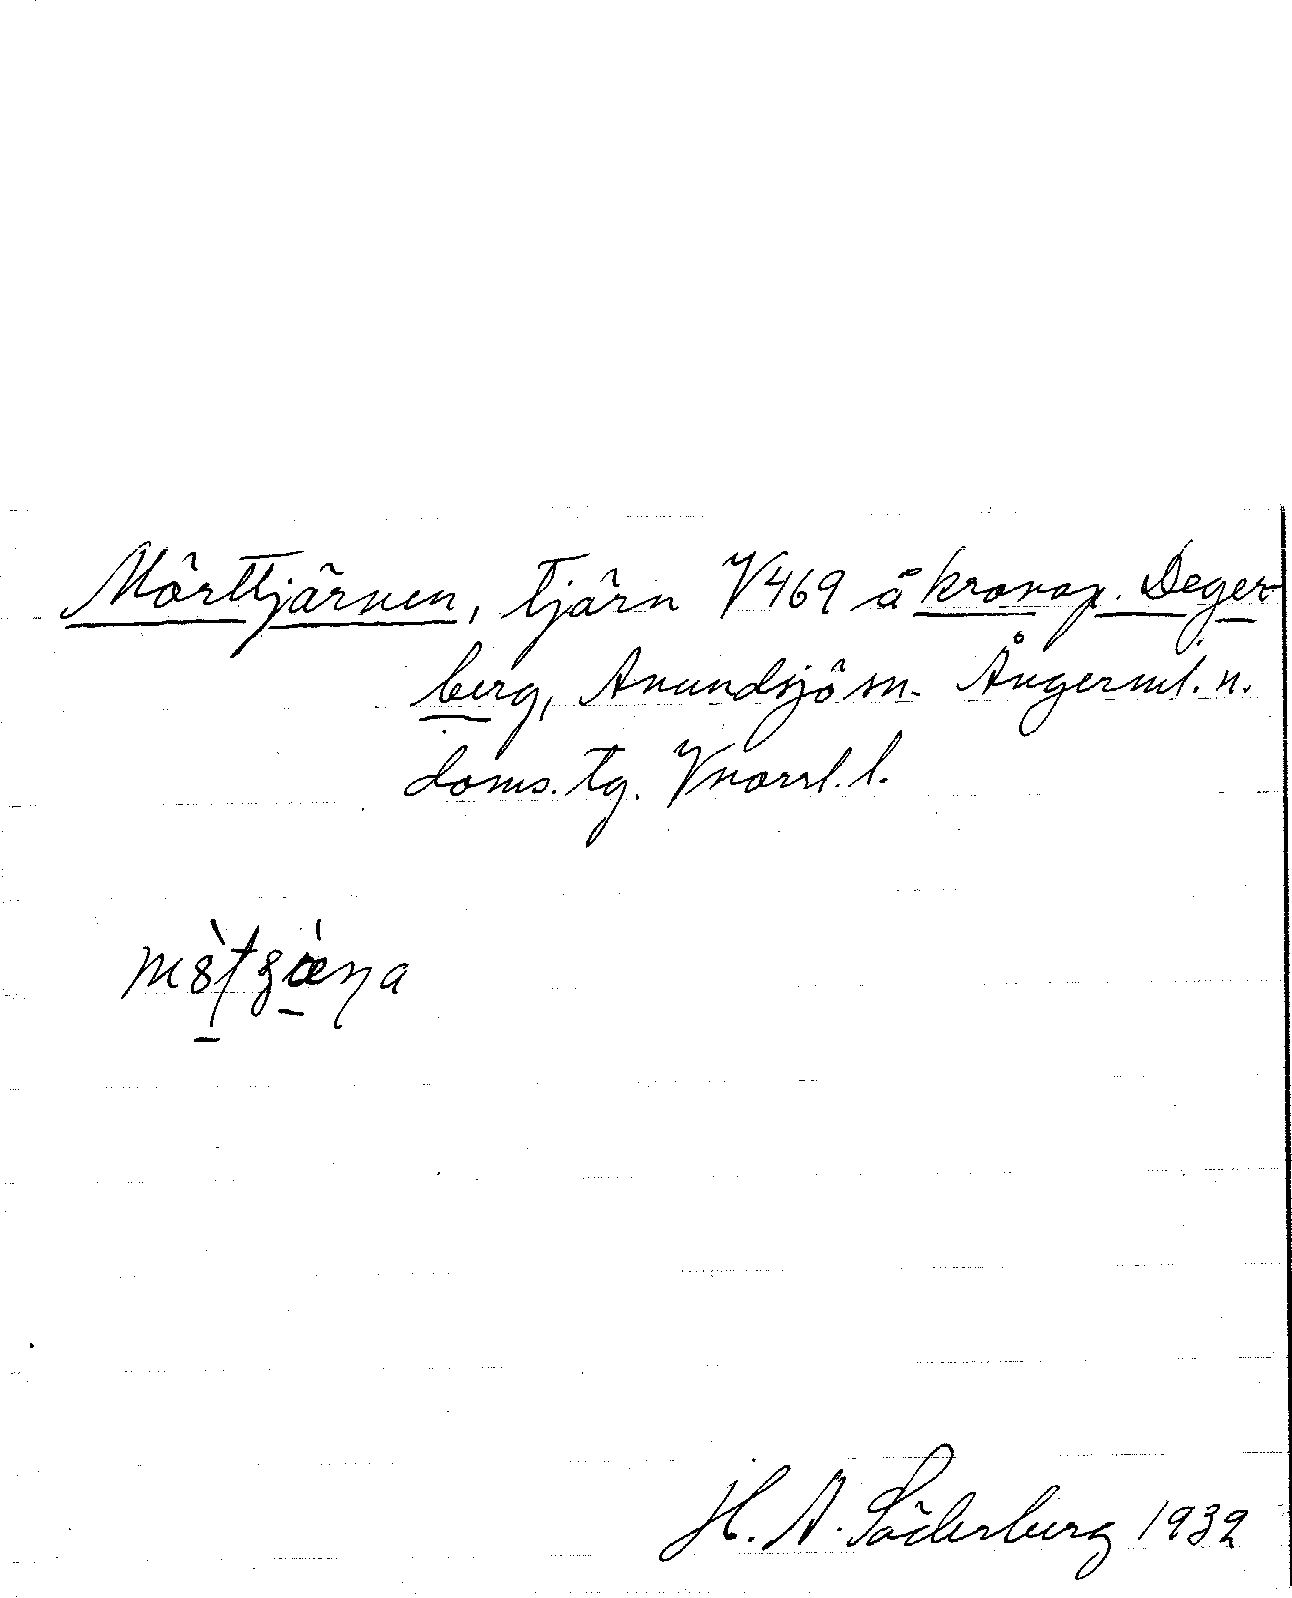 Mörttjärnen, tjärn V469 å kronop. Deger
berg, Anundsjö sn. Ångerml. n.
doms. tg. Vnorrl. l.
H. A. Söderberg 1932